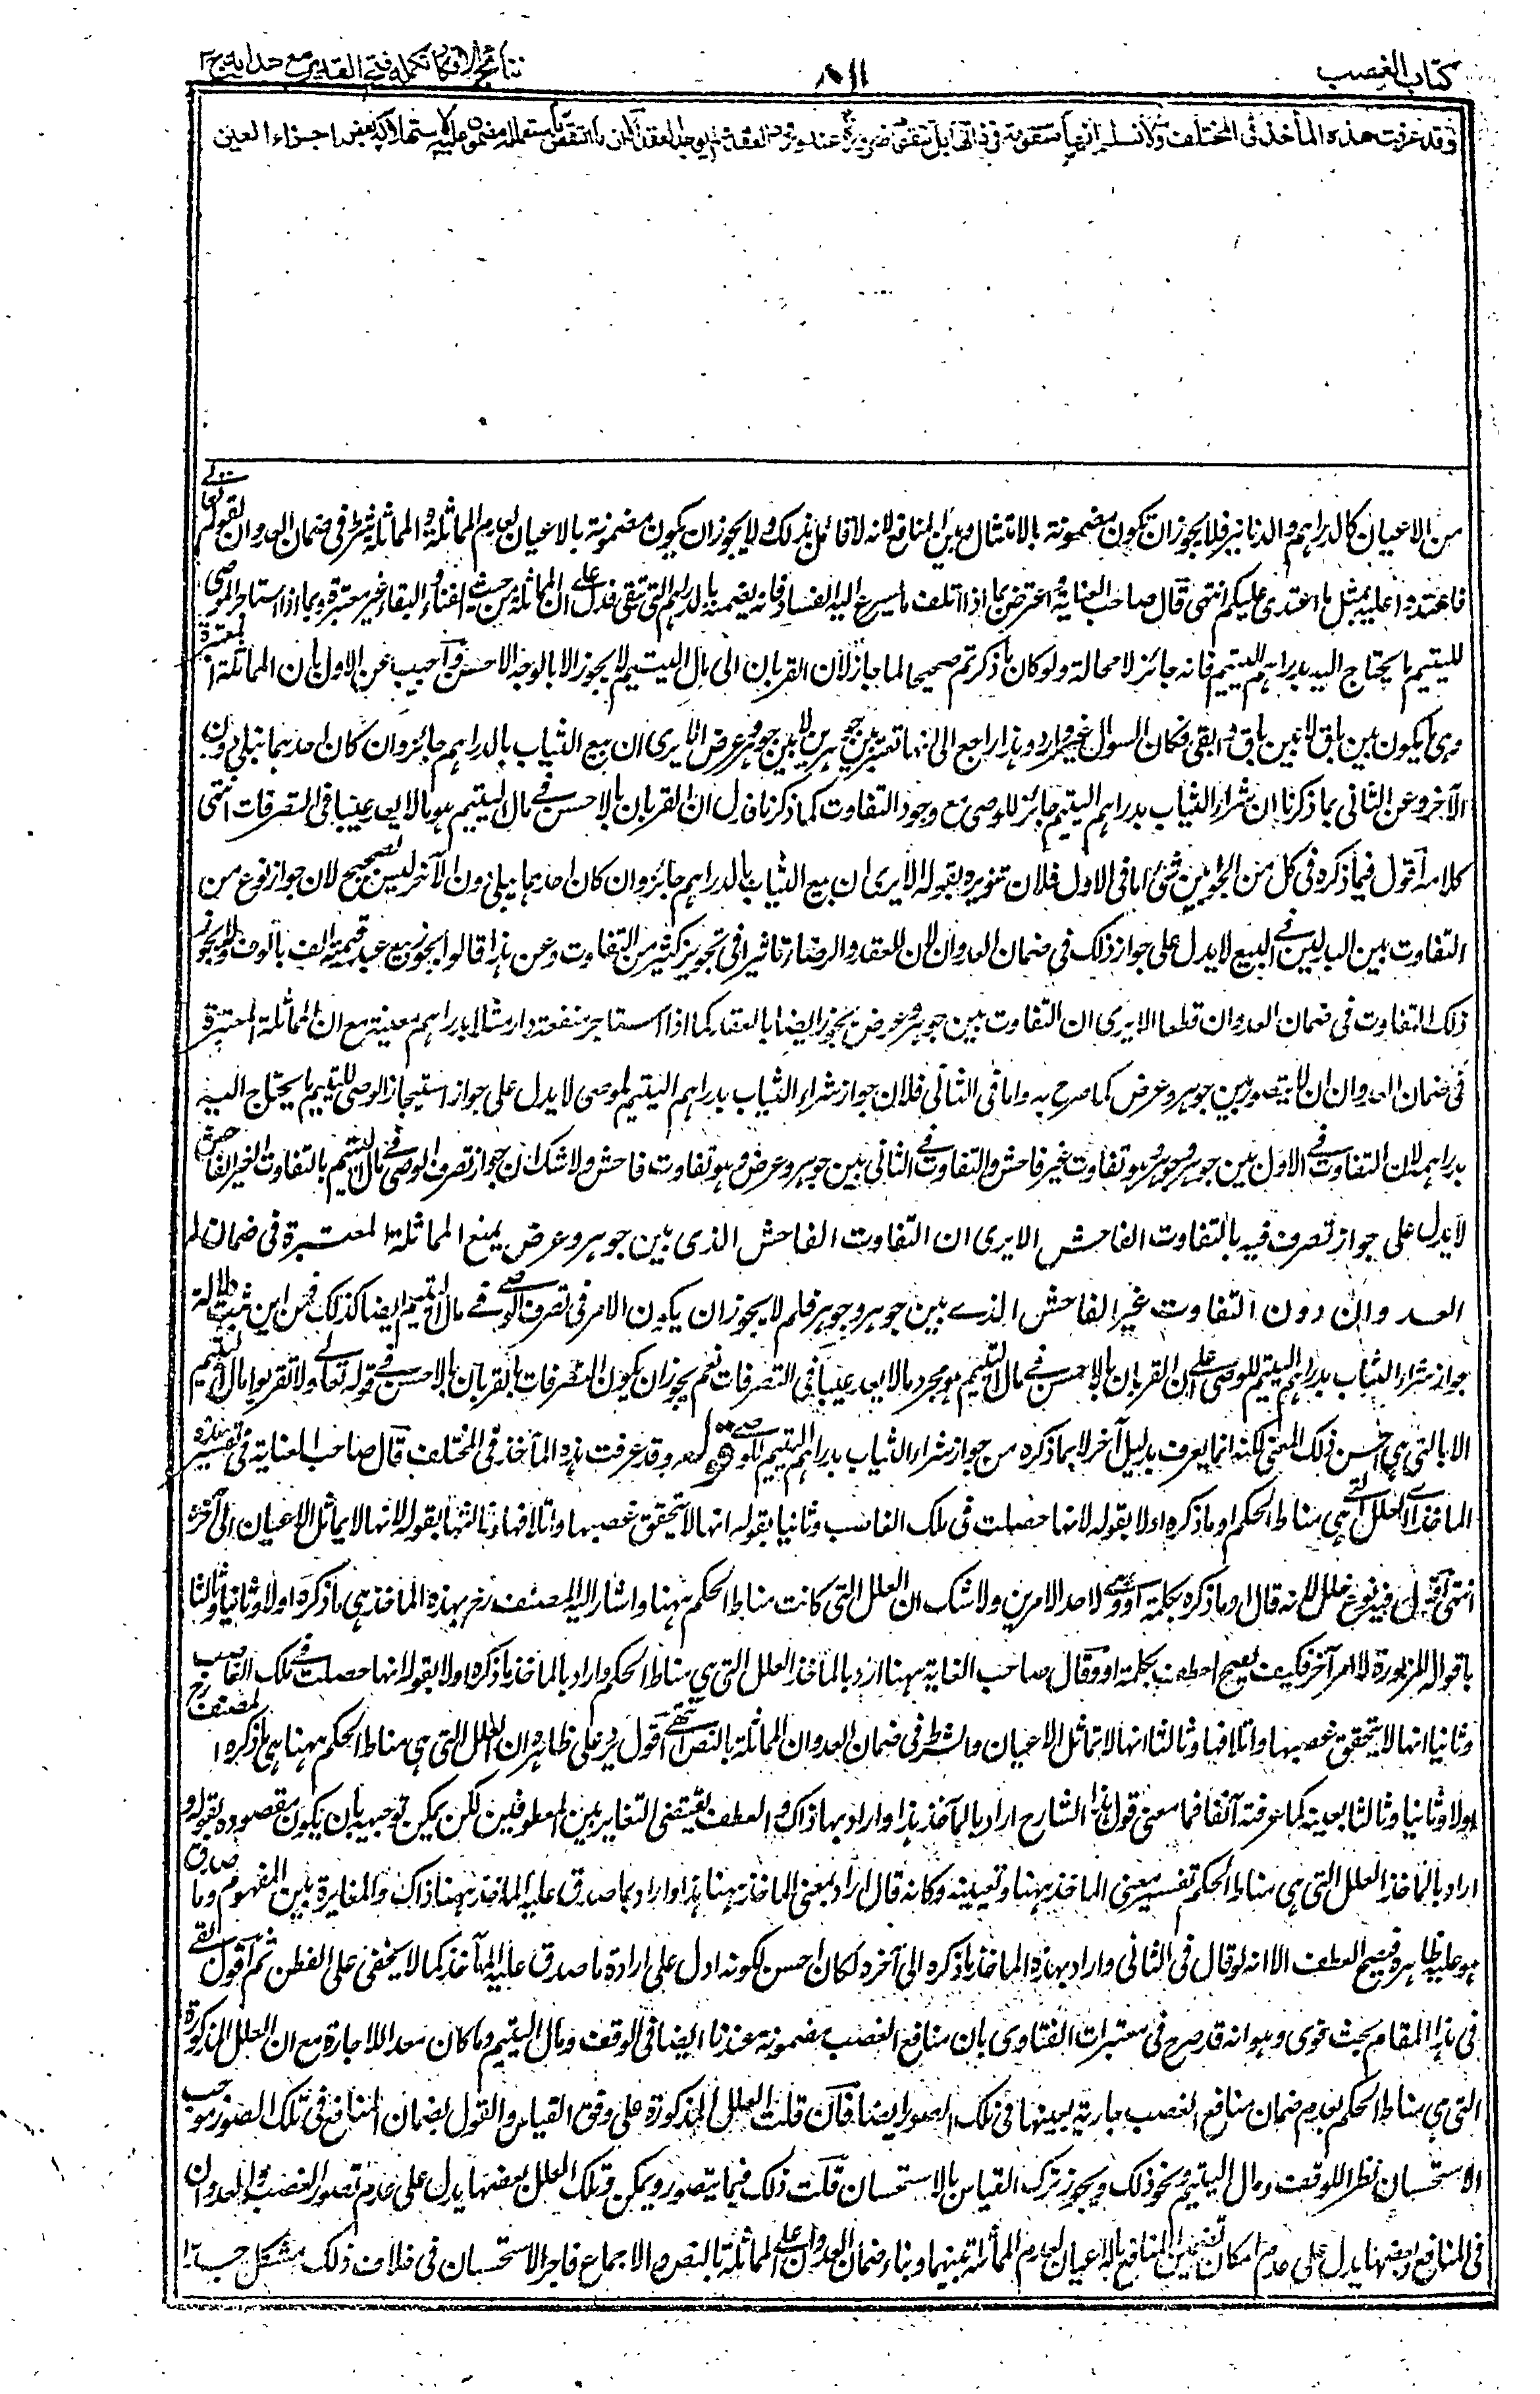 كتاب الغصب
٨١١
نتائج الافكار تكمله فتح القدير مع هدايه ج٣
وقد عرفت هذه المآخذ فى المختلف ولا نسلم انها متقومة فى ذاتها بل تتقوم ضرورة عند ورود العقد ولم يوجد العقد الا ان ما انتقص باستعماله مضمون عليه لاستهلاكه بعض اجزاء العين
من الاعيان كالدراهم والدنانير فلا يجوز ان تكون مضمونة بالامثال وهى المنافع لانه لا قائل بذلك ولا يجوز ان يكون مضمونة بالاعيان لعدم المماثلة والمماثلة شرط فى ضمان العدوان لقوله تعالى
فاعتدوا عليه بمثل ما اعتدى عليكم انتهى قال صاحب العناية واعترض بما اذا اتلف ما يسرع اليه الفساد فانه يضمنه بالدراهم التى تبقى فدل على ان المماثلة من حيث الفناء والبقاء غير معتبرة وبما اذا استاجر الوصى
لليتيم ما يحتاج اليه بدراهم اليتيم فانه جائز لا محالة ولو كان ما ذكرتم صحيحا لما جاز لان القربان الى مال اليتيم لا يجوز الا بالوجه الاحسن واجيب عن الاول بان المماثلة المعتبرة
هى ما يكون بين باق وباق لا بين باق وابقى فكان السوال غير وارد وهذا راجع الى انها تعتبر بين جوهرين لا بين جوهر وعرض الا يرى ان بيع الثياب بالدراهم جائز وان كان احدهما يبلى دون
الآخر وعن الثانى بما ذكرنا ان شراء الثياب بدراهم اليتيم جائز للوصى مع وجود التفاوت كما ذكرنا فدل ان القربان بالاحسن فى مال اليتيم هو ما لا يعد عيبا فى التصرفات انتهى
كلامه اقول فيما ذكره فى كل من الجوابين شئ اما فى الاول فلان تنويره بقوله الا يرى ان بيع الثياب بالدراهم جائز وان كان احدهما يبلى دون الآخر ليس بصحيح لان جواز نوع من
التفاوت بين البدلين فى البيع لا يدل على جواز ذلك فى ضمان العدوان لان للعقد والرضاء تاثيرا فى تجويز كثير من التفاوت وعن هذا قالوا يجوز بيع عبد قيمته الف بالوف ولا يجوز
ذلك التفاوت فى ضمان العدوان قطعا الا يرى ان التفاوت بين جوهر وعرض يجوز ايضا بالعقد كما اذا استاجر منفعة دار مثلا بدراهم معينة مع ان المماثلة المعتبرة
فى ضمان العدوان لا يتصور بين جوهر وعرض كما صرح به واما فى الثانى فلان جواز شراء الثياب بدراهم اليتيم للوصى لا يدل على جواز استيجار الوصى لليتيم ما يحتاج اليه
بدراهمه لان التفاوت فى الاول بين جوهر وجوهر وهو تفاوت غير فاحش والتفاوت فى الثانى بين جوهر وعرض وهو تفاوت فاحش ولا شك ان جواز تصرف الوصى فى مال اليتيم بالتفاوت الغير الفاحش
لا يدل على جواز تصرف فيه بالتفاوت الفاحش الا يرى ان التفاوت الفاحش الذى بين جوهر وعرض يمنع المماثلة المعتبرة فى ضمان
العدوان دون التفاوت غير الفاحش الذى بين جوهر وجوهر فلم لا يجوز ان يكون الامر فى تصرف الوصى فى مال اليتيم ايضا كذلك فمن اين ثبت دلالة
جواز شراء الثياب بدراهم اليتيم للوصى على ان القربان بالاحسن فى مال اليتيم هو مجرد ما لا يعد عيبا فى التصرفات نعم يجوز ان يكون المراد بالقربان بالاحسن فى قوله تعالى ولا تقربوا مال اليتيم
الا بالتى هى احسن ذلك المعنى لكنه انما يعرف بدليل آخر لا بما ذكره من جواز شراء الثياب بدراهم اليتيم للوصى قوله وقد عرفت هذه المآخذ فى المختلف قال صاحب العناية فى تفسير هذه
الماخذ اى العلل التى هى مناط الحكم او ما ذكره اولا بقوله لانها حصلت فى ملك الغاصب وثانيا بقوله انها لا يتحقق غصبها واتلافها وثالثها بقوله لانها لا يماثل الاعيان الى آخره
انتهى اقول فيه نوع خلل لانه قال او ما ذكره بكلمة او وهى لاحد الامرين ولا شك ان العلل التى كانت مناط الحكم ههنا واشار اليه المصنف رح بهذه الماخذ هى ما ذكره اولا وثانيا وثالثا
باقواله المزبورة لا امر آخر فكيف يصح العطف بكلمة او وقال صاحب الغاية ههنا اراد بالماخذ العلل التى هى مناط الحكم واراد بالماخذ ما ذكره اولا بقوله انها حصلت فى ملك الغاصب
وثانيا انها لا يتحقق غصبها واتلافها وثالثا انها لا تماثل الاعيان والشرط فى ضمان العدوان المماثلة بالنص انتهى اقول يرد على ظاهره ان العلل التى هى مناط الحكم ههنا هى ما ذكره المصنف رح
اولا وثانيا وثالثا بعينه كما عرفته آنفا فما معنى قول هذا الشارح اراد بالمآخذ هذا واراد بها ذاك والعطف يقتضى التغاير بين المعطوفين لكن يمكن توجيهه بان يكون مقصوده بقوله و
اراد بالماخذ العلل التى هى مناط الحكم تفسير معنى الماخذ ههنا وتعيينه وكانه قال اراد بمعنى الماخذ ههنا هذا واراد بما صدق عليه الماخذ ههنا ذاك والمغايرة بين المفهوم وما صدق
هو عليه ظاهرة فيصح العطف الا انه لو قال فى الثانى واراد بهذه الماخذ ما ذكره الى آخره لكان احسن لكونه ادل على ارادة ما صدق عليه المآخذ كما لا يخفى على الفطن ثم اقول بقى
فى هذا المقام بحث قوى وهو انه قد صرح فى معتبرات الفتاوى بان منافع الغصب مضمونة عندنا ايضا فى الوقف ومال اليتيم وما كان معدا للاجارة مع ان العلل المذكورة
التى هى مناط الحكم بعدم ضمان منافع الغصب جارية بعينها فى تلك الصور ايضا فان قلت العلل المذكورة على وفق القياس والقول بضمان المنافع فى تلك الصور موجب
الاستحسان نظرا للوقف ومال اليتيم ونحو ذلك ويجوز ترك القياس بالاستحسان قلت ذلك فيما يتصور ويمكن وتلك العلل بعضها يدل على عدم تصور الغصب والعدوان
فى المنافع وبعضها يدل على عدم امكان تضمين المنافع بالاعيان لعدم المماثلة بينهما وبناء ضمان العدوان على المماثلة بالنص والاجماع فاجراء الاستحسان فى خلاف ذلك مشكل جدا